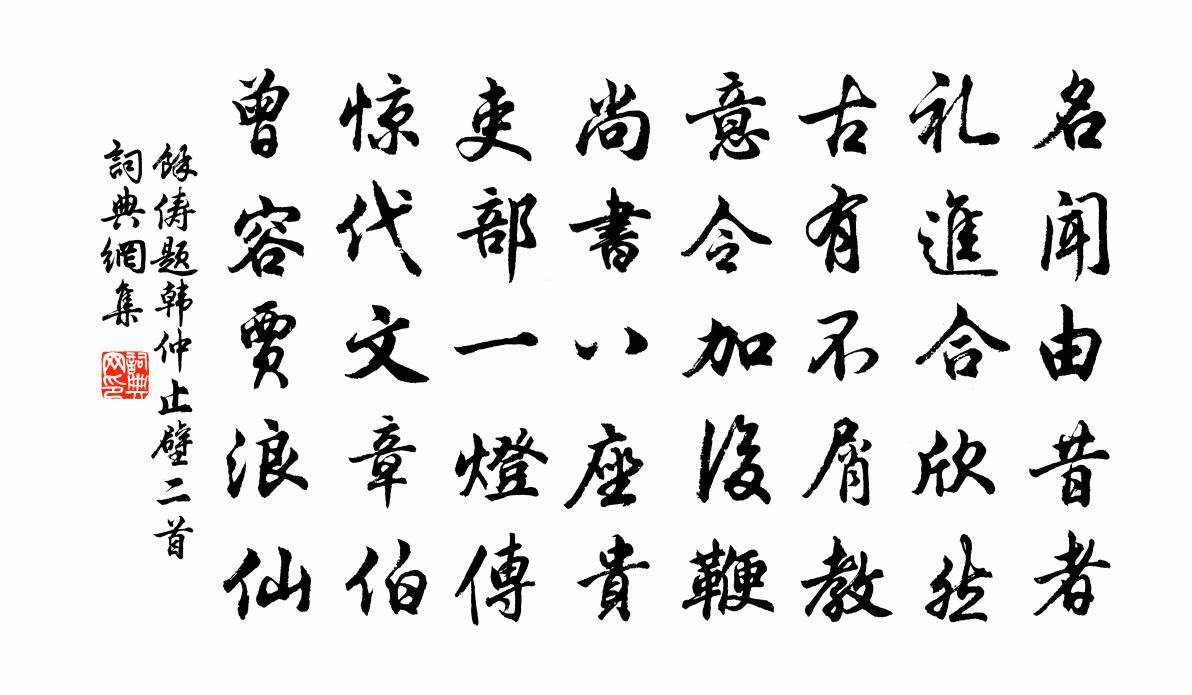 名闻由昔者
礼進合欣然
古有不屑教
意令加後鞭
尚書八座貴
吏部一燈傳
惊代文章伯
曾容賈浪仙
馀俦题韩仲止壁二首
詞典網集
詞典网印